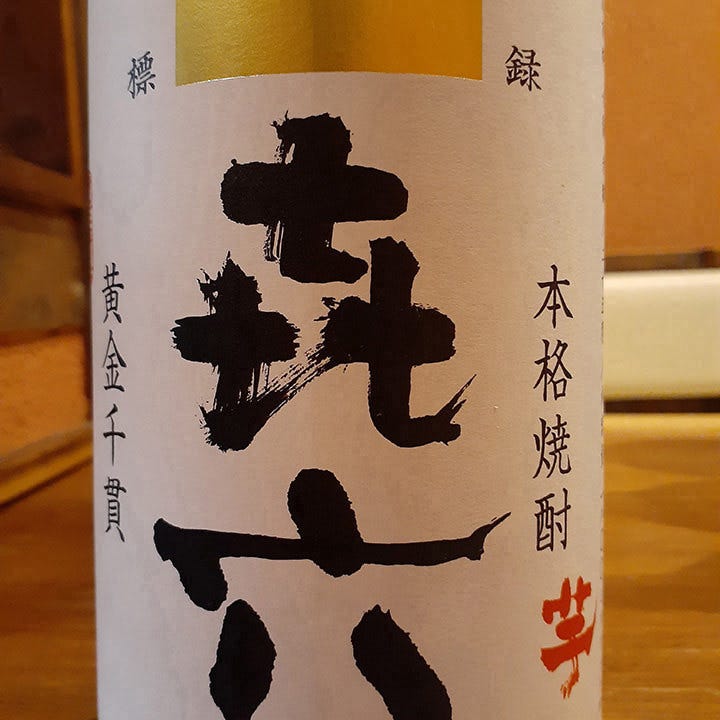 録
標
本格焼酎
芋
㐂六
黄金千貫